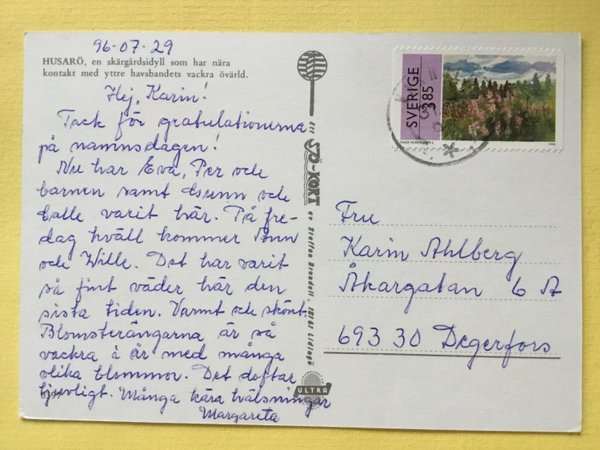 96-07-29
HUSARÖ, en skärgårdsidyll som har nära
kontakt med yttre havsbandets vackra övärld.
Hej, Karin!
Tack för gratulationerna
på namnsdagen!
Nu har Eva, Per och
barnen samt Gunn och
Calle varit här. På fre-
dag kväll kommer Ann
och Wille. Det har varit
så fint väder här den
sista tiden. Varmt och skönt.
Blomsterängarna är så
vackra i år med många
olika blommor. Det doftar
ljuvligt. Många kära hälsningar
Margareta
ett
SÖ-KORT
av Staffan Brundell, 181 67 Lidingö
ULTRA
SVERIGE
3.85
Fru
Karin Ahlberg
Åkargatan 6 A
693 30 Degerfors